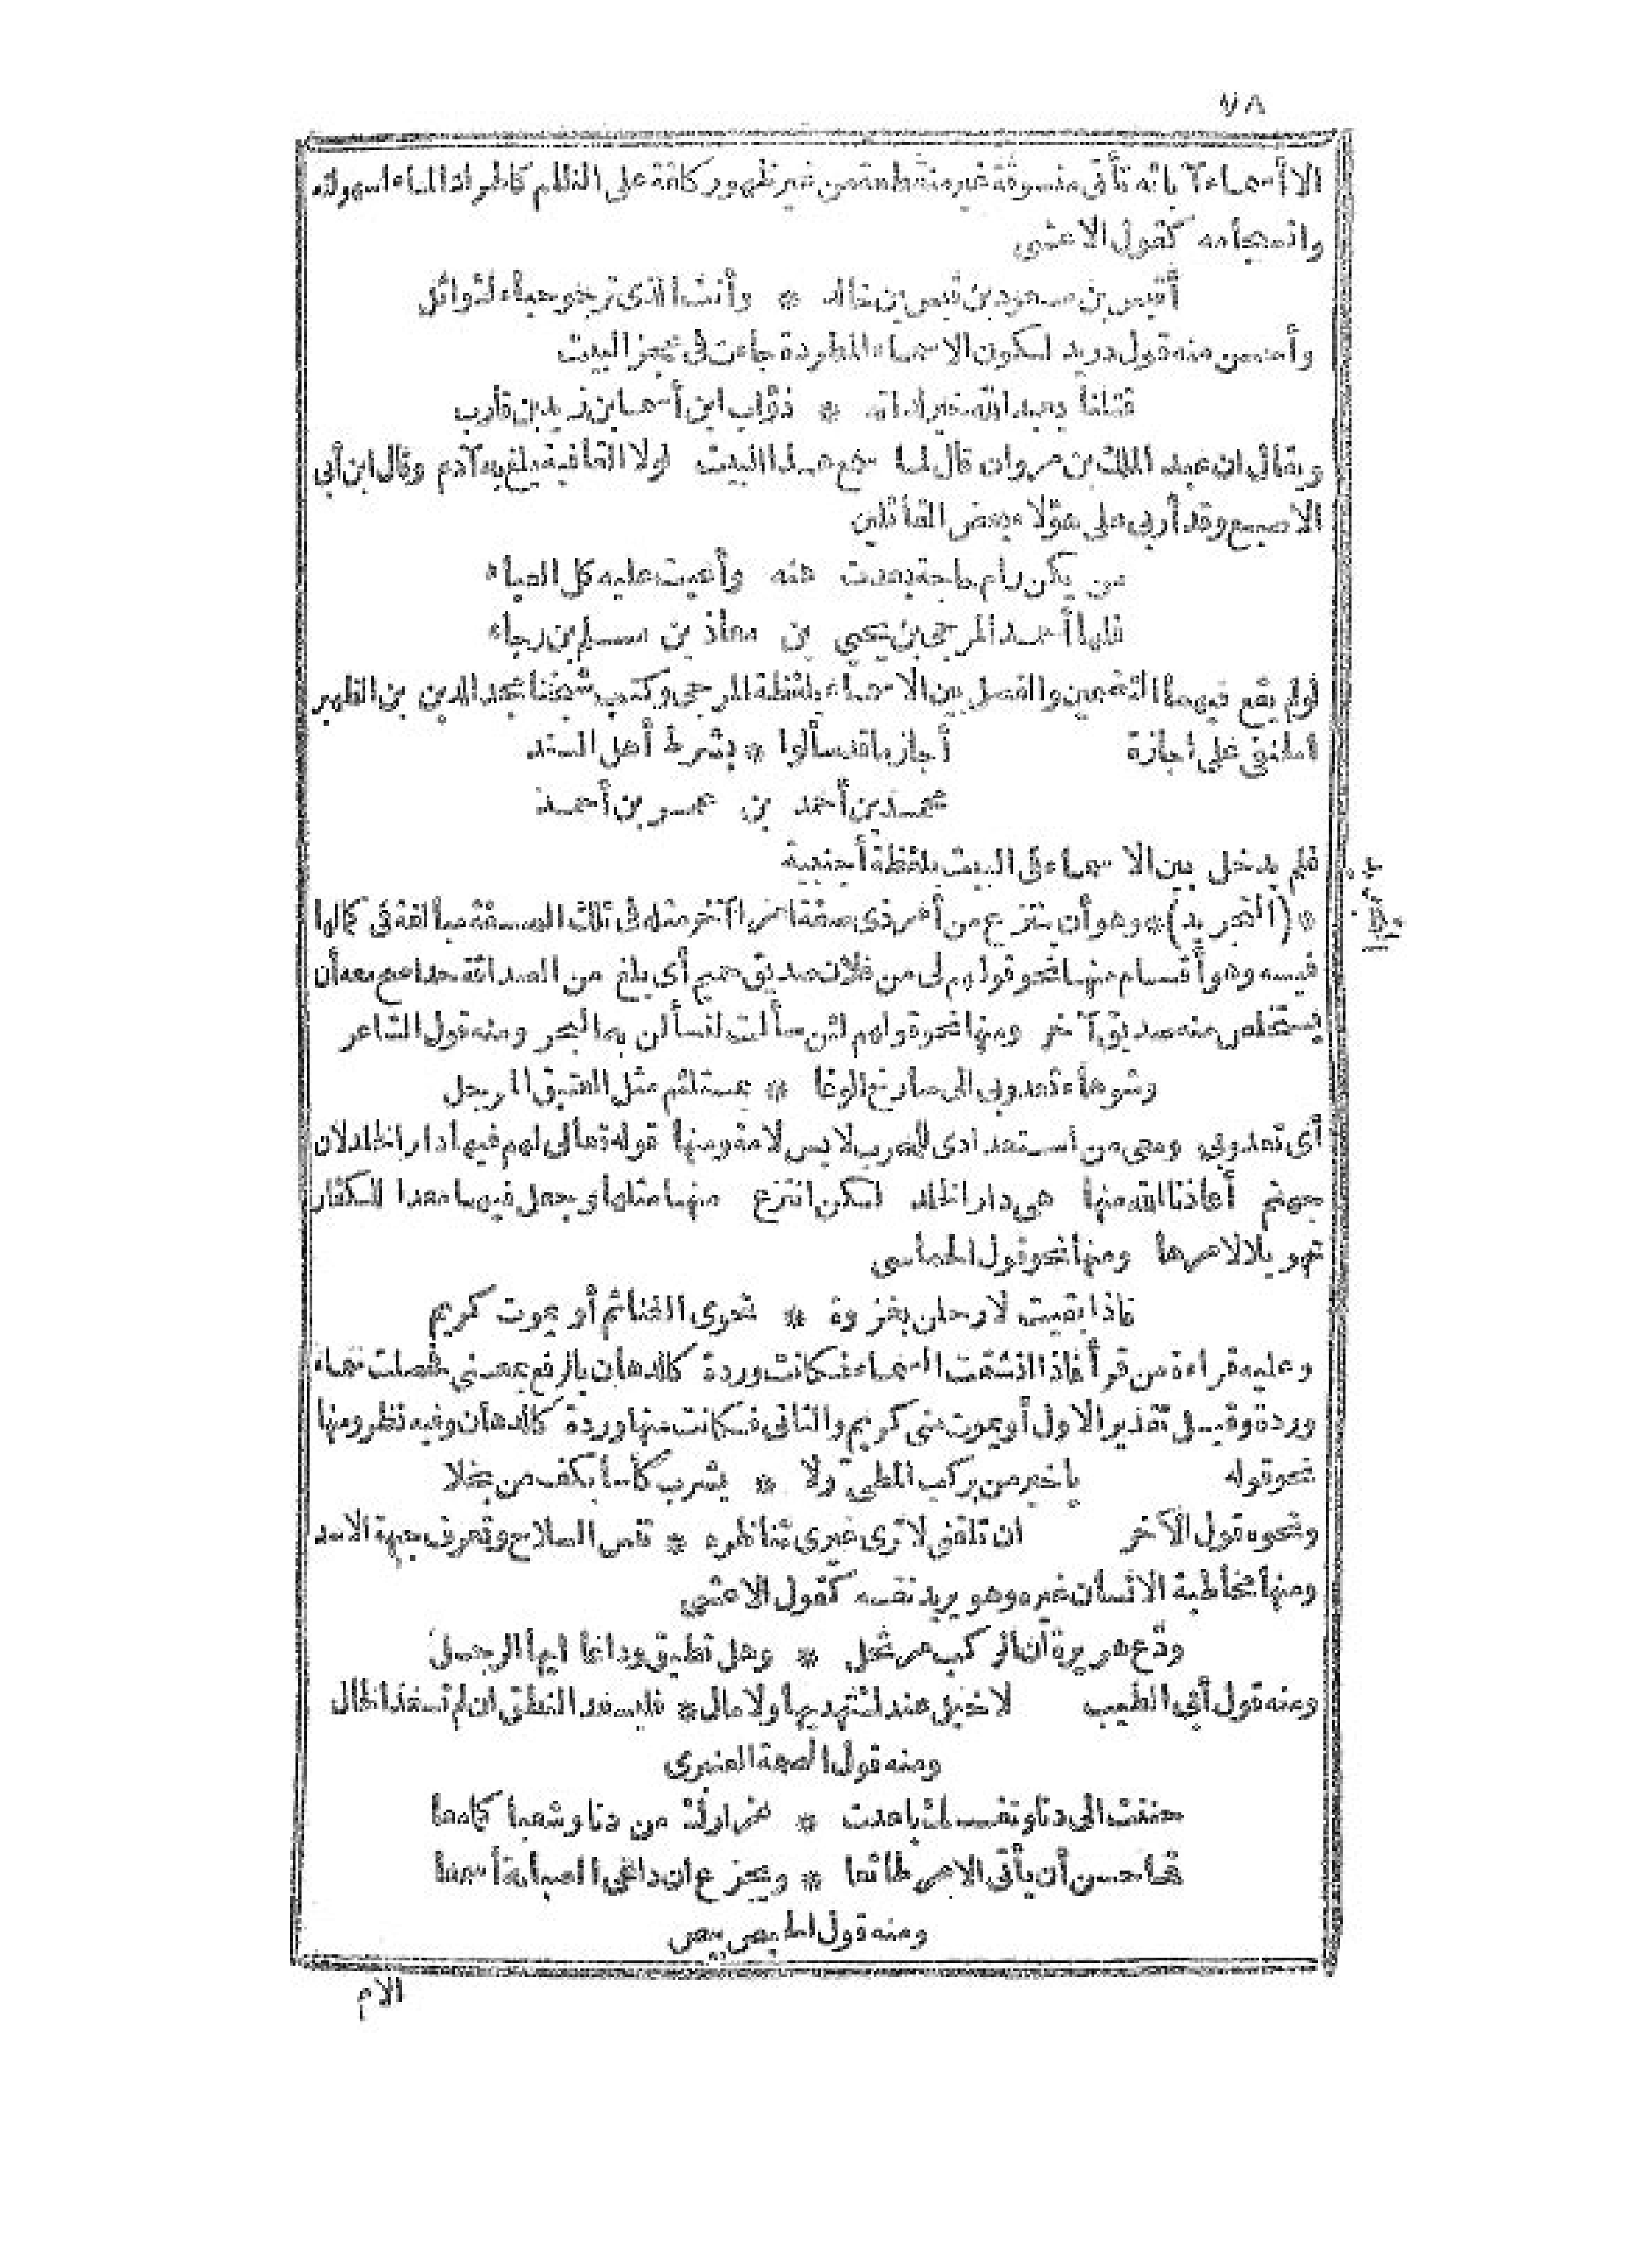 ٧٨
الا أسماء آبائه تأتي منسوقة غير منقطعة من غير ظهور كلفة على النظام كاطراد الماء لسهولته
وانسجامه كقول الاعشى
أقيس بن مسعود بن قيس بن خالد * وأنت الذي ترجو حباءك وائل
وأحسن منه قول دريد لكون الاسماء المطردة جاءت في عجز البيت
قتلنا بعبد الله خير لداته * ذؤاب ابن أسما بن زيد بن قارب
ويقال ان عبد الملك بن مروان قال لما سمع هذا البيت لولا القافية بلغ به آدم وقال ابن أبي
الاصبع وقد أربى على هؤلاء بعض القائلين
من يكن رام حاجة بعدت عنه وأعيت عليه كل العياء
فلها أحمد المرجى بن يحيى بن معاذ بن مسلم بن رجاء
لو لم يقع فيهما التضمين والفصل بين الاسماء بلفظة المرجى وكتب شيخنا مجد الدين بن الظهير
الحنفي على اجازة أجاز ما قد سألوا * بشرط أهل السند
محمد بن أحمد بن عمر بن أحمد
فلم يدخل بين الاسماء في البيت بلفظة أجنبية
التجريد
*(التجريد)* وهو أن ينتزع من أمر ذي صفة أمر آخر مثله في تلك الصفة مبالغة في كمالها
فيه وهو أقسام منها نحو قولهم لي من فلان صديق حميم أي بلغ من الصداقة حدا صح معه أن
يستخلص منه صديق آخر ومنها نحو قولهم لئن سألت لتسألن به البحر ومنه قول الشاعر
وشوهاء تعدو بي الى صارخ الوغا * بمستلئم مثل الفنيق المرجل
أي تعدو بي ومعي من استعدادي للحرب لابس لامة ومنها قوله تعالى لهم فيها دار الخلد لان
جهنم أعاذنا الله منها هي دار الخلد لكن انتزع منها مثلها أو جعل فيها معدا للكفار
تهويلا لامرها ومنها نحو قول الحماسي
فاذا بقيت لارحلن بغزوة * تحوي الغنائم أو يموت كريم
وعليه قراءة من قرأ فاذا انشقت السماء فكانت وردة كالدهان بالرفع بمعنى حصلت سماء
وردة وقيل تقدير الاول أو يموت مني كريم والثاني فكانت منها وردة كالدهان وفيه نظر ومنها
نحو قوله يا خير من يركب المطي ولا * يشرب كأسا بكف من بخلا
ونحوه قول الآخر ان تلقني لا ترى غيري بناظره * تنس السلاح وتعرف جبهة الاسد
ومنها مخاطبة الانسان غيره وهو يريد نفسه كقول الاعشى
ودّع هريرة ان الركب مرتحل * وهل تطيق وداعا ايها الرجل
ومنه قول أبي الطيب لا خيل عندك تهديها ولا مال * فليسعد النطق ان لم تسعد الحال
ومنه قول الصمة العنبري
حننت الى ريا ونفسك باعدت * مزارك من ريا وشعبا كما معا
فما حسن أن يأتي الامر طائعا * وتجزع ان داعي الصبابة أسمعا
ومنه قول الحيص بيص
الام